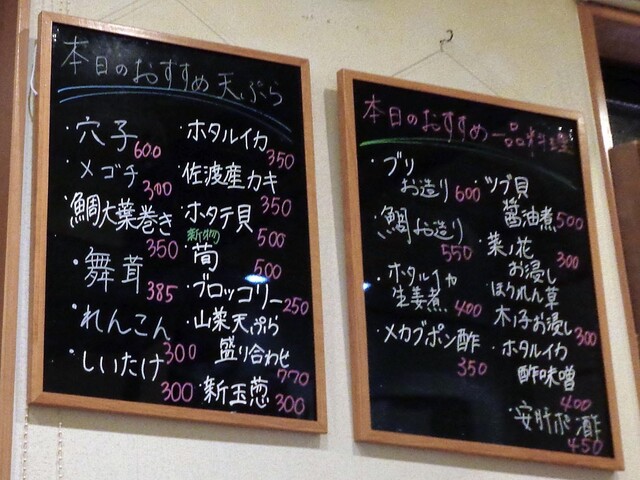 本日のおすすめ 天ぷら
・穴子
600
・メゴチ
300
・鯛大葉巻き
350
・舞茸
385
・れんこん
300
・しいたけ
300
・ホタルイカ
350
佐渡産カキ
350
・ホタテ貝
500
新物
筍
500
・ブロッコリー
250
・山菜天ぷら
盛り合わせ
770
・新玉葱
300
本日のおすすめ一品料理
・ブリ
お造り
600
・鯛お造り
550
・ホタルイカ
生姜煮
400
・メカブポン酢
350
・ツブ貝
醤油煮
500
・菜ノ花
お浸し
300
・ほうれん草
木ノ子お浸し
300
・ホタルイカ
酢味噌
400
・安肝ポン酢
450